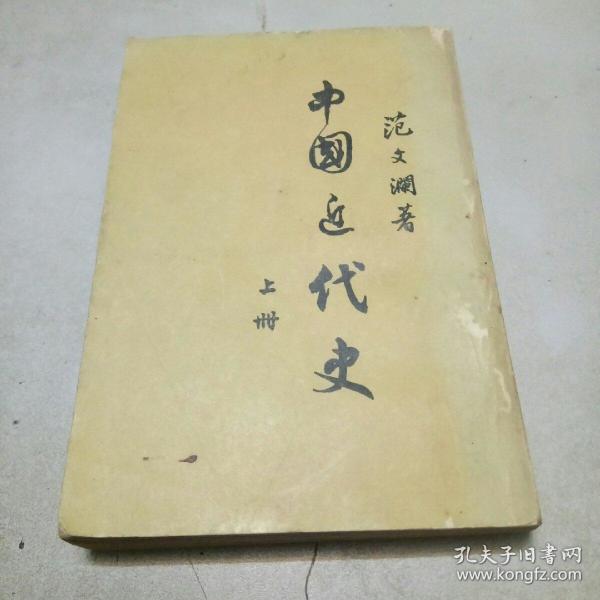 范文瀾著
中國近代史
上冊
孔夫子旧書网
www.kongfz.com